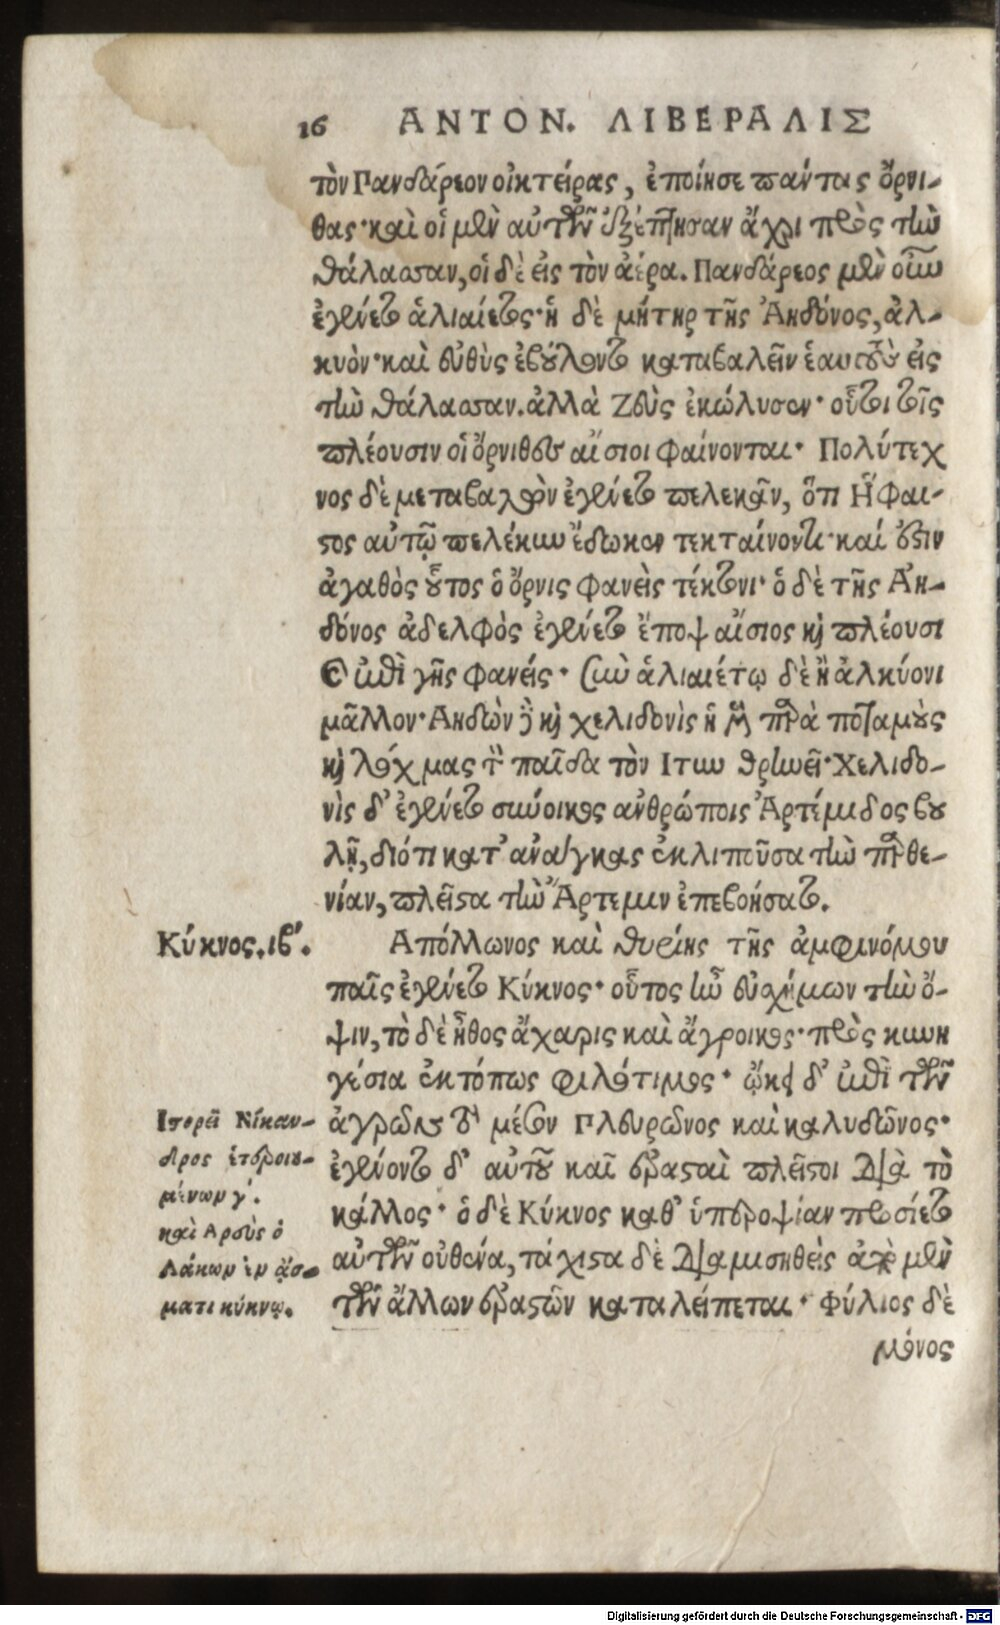 16 ΑΝΤΟΝ. ΛΙΒΕΡΑΛΙΣ
τὸν Πανδάρεον οἰκτείρας, ἐποίησε πάντας ὄρνι-
θας· καὶ οἱ μὲν αὐτῶν ἐξέπτησαν ἄχρι πρὸς τὴν
θάλασσαν, οἱ δὲ εἰς τὸν ἀέρα. Πανδάρεος μὲν οὖν
ἐγένετο ἁλιαίετος· ἡ δὲ μήτηρ τῆς Ἀηδόνος, ἀλ-
κυὸν· καὶ εὐθὺς ἐβούλοντο καταβαλεῖν ἑαυτοὺς εἰς
τὴν θάλασσαν. ἀλλὰ Ζεὺς ἐκώλυσεν· οὗτοι τοῖς
πλέουσιν οἱ ὄρνιθες αἴσιοι φαίνονται· Πολύτεχ
νος δὲ μεταβαλὼν ἐγένετο πελεκᾶν, ὅτι Ἥφαι-
στος αὐτῷ πελέκυν ἔδωκεν τεκταίνοντι· καί ἐστιν
ἀγαθὸς οὗτος ὁ ὄρνις φανεὶς τέκτονι· ὁ δὲ τῆς Ἀη-
δόνος ἀδελφὸς ἐγένετο ἔποψ αἴσιος καὶ πλέουσι
καὶ ἐπὶ γῆς φανείς· σὺν ἁλιαιέτῳ δὲ ἢ ἀλκύονι
μᾶλλον· Ἀηδὼν δὲ καὶ χελιδονὶς ἡ μὲν παρὰ ποταμοὺς
καὶ λόχμας τὸν παῖδα τὸν Ιτυν θρηνεῖ· Χελιδο-
νὶς δ' ἐγένετο σύνοικος ἀνθρώποις Ἀρτέμιδος βου
λῇ, διότι κατ' ἀνάγκας ἐκλιποῦσα τὴν παρθε-
νίαν, πλεῖστα τὴν Ἄρτεμιν ἐπεβοήσατο.
Κύκνος. ιβ'.
Ἀπόλλωνος καὶ θυρίης τῆς ἀμφινόμου
παῖς ἐγένετο Κύκνος· οὗτος ἦν εὐσχήμων τὴν ὄ-
ψιν, τὸ δὲ ἦθος ἄχαρις καὶ ἄγροικος· πρὸς κυνη
γέσια ἐκτόπως φιλότιμος· ᾤκει δ' ἐπὶ τῶν
ἀγρῶν τὸ μέσον Πλευρῶνος καὶ καλυδῶνος·
ἐγένοντο δ' αὐτοῦ καὶ ἐρασταὶ πλεῖστοι διὰ τὸ
κάλλος· ὁ δὲ Κύκνος καθ' ὑπεροψίαν προσίετο
αὐτῶν οὐθένα, τάχιστα δὲ διαμισηθεὶς ἀπὸ μὲν
τῶν ἄλλων ἐραστῶν καταλείπεται· Φύλιος δὲ
μόνος
Ιστορεῖ Νίκαν-
δρος ἑτεροιου-
μένων γ'.
καὶ Αρεὺς ὁ
Λάκων ἐν ᾄσ-
ματι κύκνῳ.
Digitalisierung gefördert durch die Deutsche Forschungsgemeinschaft - DFG